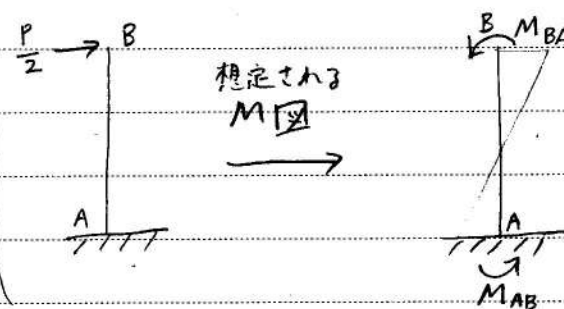 P/2
B
A
想定される
M図
B
M_BA
A
M_AB